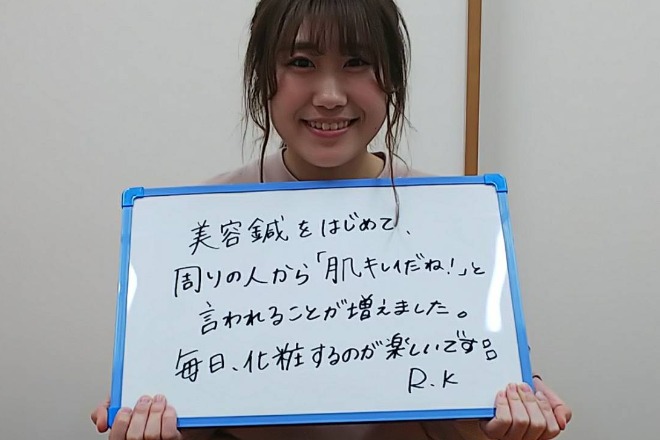 美容鍼をはじめて、
周りの人から「肌キレイだね!」と
言われることが増えました。
毎日、化粧するのが楽しいです!!
R.K